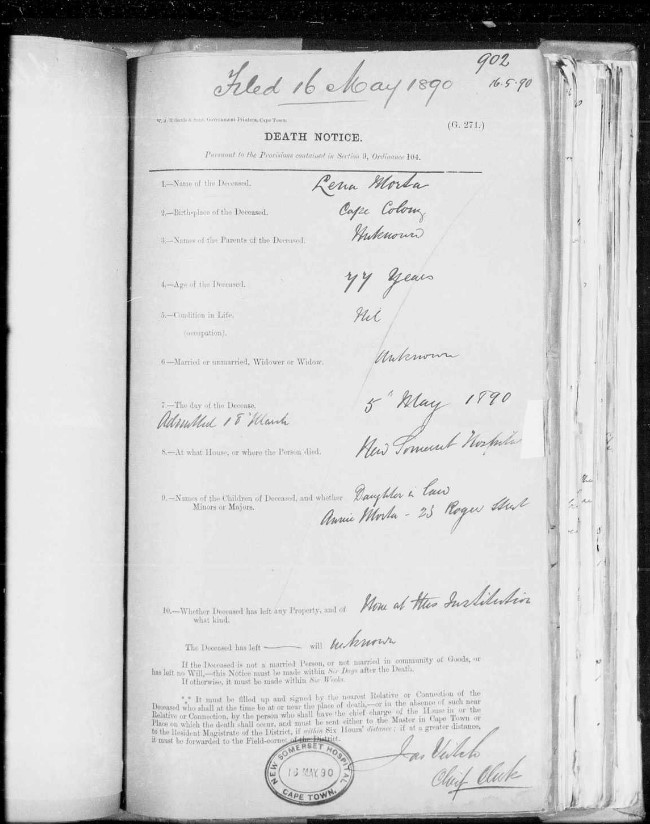 902
Filed 16 May 1890
16.5.90
Government Printers, Cape Town.
(G. 271.)
DEATH NOTICE.
Pursuant to the Provisions contained in Section 9, Ordinance 104.
1.—Name of the Deceased. Lena Morta
2.—Birthplace of the Deceased. Cape Colony
3.—Names of the Parents of the Deceased. Unknown
4.—Age of the Deceased. 77 Years
5.—Condition in Life. Nil
(occupation).
6—Married or unmarried, Widower or Widow. Unknown
7.—The day of the Decease. 5th May 1890
Admitted 18 March
8.—At what House, or where the Person died. New Somerset Hospital
9.—Names of the Children of Deceased, and whether Daughter in law
Minors or Majors. Annie Morta - 23 Roger Street
10.—Whether Deceased has left any Property, and of None at this Institution
what kind.
The Deceased has left — will unknown
If the Deceased is not a married Person, or not married in community of Goods, or
has left no Will,—this Notice must be made within Six Days after the Death.
If otherwise, it must be made within Six Weeks.
*** It must be filled up and signed by the nearest Relative or Connection of the
Deceased who shall at the time be at or near the place of death,—or in the absence of such near
Relative or Connection, by the person who shall have the chief charge of the House in or the
Place on which the death shall occur, and must be sent either to the Master in Cape Town or
to the Resident Magistrate of the District, if within Six Hours' distance; if at a greater distance,
it must be forwarded to the Field-cornet of the District.
Jas
Chief Clerk
NEW SOMERSET HOSPITAL
16 MAY 90
CAPE TOWN.